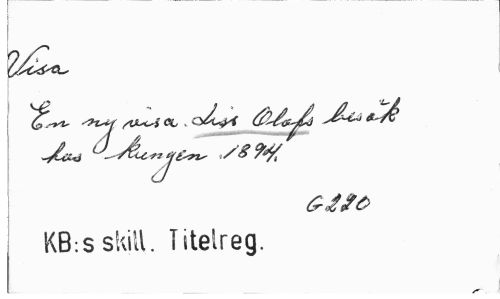 Visa
En ny visa. Liss Olofs besök
hos kungen 1894.
G220
KB:s skill. Titelreg.